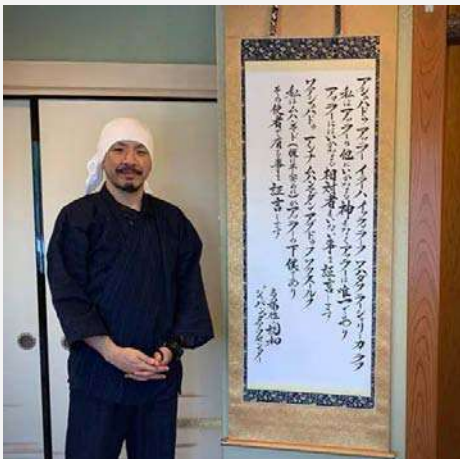 アシュハドゥ アッラー イラーハ イッラッラーフ ワハダフ ラーシャリーカ ラフ
私はアッラーの他にいかなる神もなくアッラーは唯一であり
アッラーにはいかなる相対者もいない事を証言します
ワアシュハドゥ アンナ ムハンマダン アブドゥフ ワラスールフ
私はムハンマド(彼に平安あれ)がアッラーの下僕であり
その使者で有る事を証言します